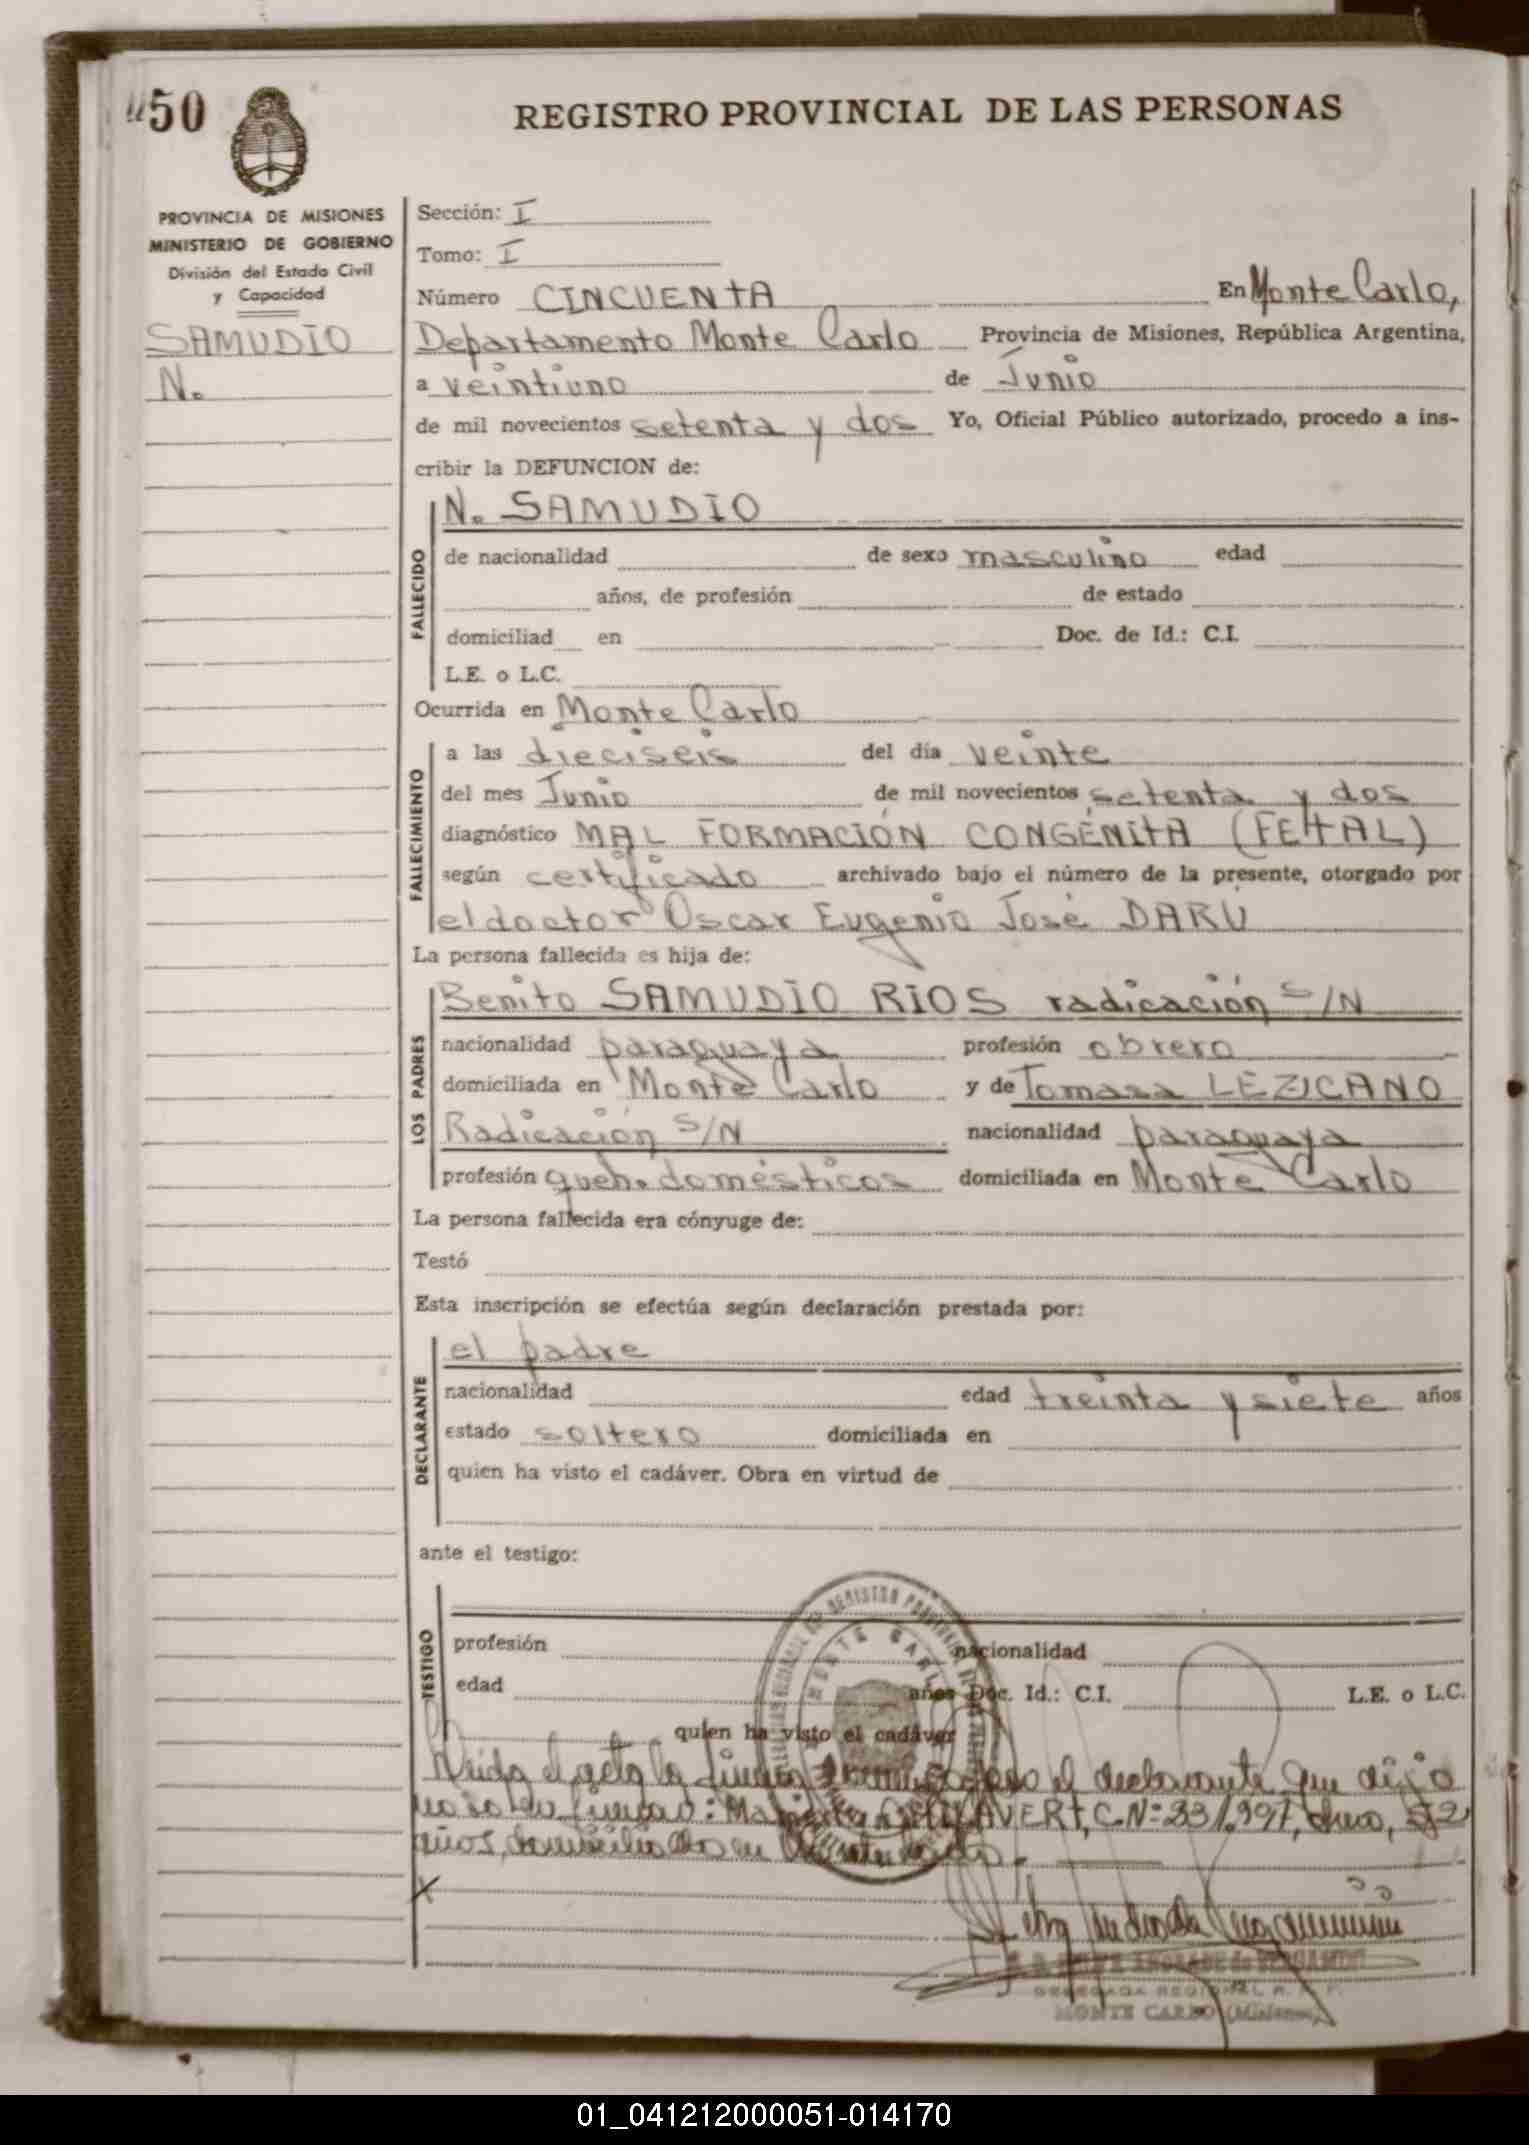 50
REGISTRO PROVINCIAL DE LAS PERSONAS
PROVINCIA DE MISIONES
MINISTERIO DE GOBIERNO
División del Estado Civil
y Capacidad
SAMUDIO
N.
Sección: I
Tomo: I
Número CINCUENTA En Monte Carlo,
Departamento Monte Carlo Provincia de Misiones, República Argentina,
a veintiuno de Junio
de mil novecientos setenta y dos Yo, Oficial Público autorizado, procedo a ins-
cribir la DEFUNCION de:
FALLECIDO
N. SAMUDIO
de nacionalidad de sexo masculino edad
años, de profesión de estado
domiciliad en Doc. de Id.: C.I.
L.E. o L.C.
Ocurrida en Monte Carlo
FALLECIMIENTO
a las dieciseis del día veinte
del mes Junio de mil novecientos setenta y dos
diagnóstico MAL FORMACIÓN CONGÉNITA (FETAL)
según certificado archivado bajo el número de la presente, otorgado por
el doctor Oscar Eugenio José DARU
La persona fallecida es hija de:
LOS PADRES
Benito SAMUDIO RIOS radicación S/N
nacionalidad paraguaya profesión obrero
domiciliada en Monte Carlo y de Tomasa LEZICANO
Radicación S/N nacionalidad paraguaya
profesión queh. domésticos domiciliada en Monte Carlo
La persona fallecida era cónyuge de:
Testó
Esta inscripción se efectúa según declaración prestada por:
DECLARANTE
el padre
nacionalidad edad treinta y siete años
estado soltero domiciliada en
quien ha visto el cadáver. Obra en virtud de
ante el testigo:
TESTIGO
profesión nacionalidad
edad años Doc. Id.: C.I. L.E. o L.C.
quien ha visto el cadáver
Leida el acta la firma el declarante que dijo
no saber firmar:
años, domiciliado en
MONTE CARLO (Misiones)
01_041212000051-014170